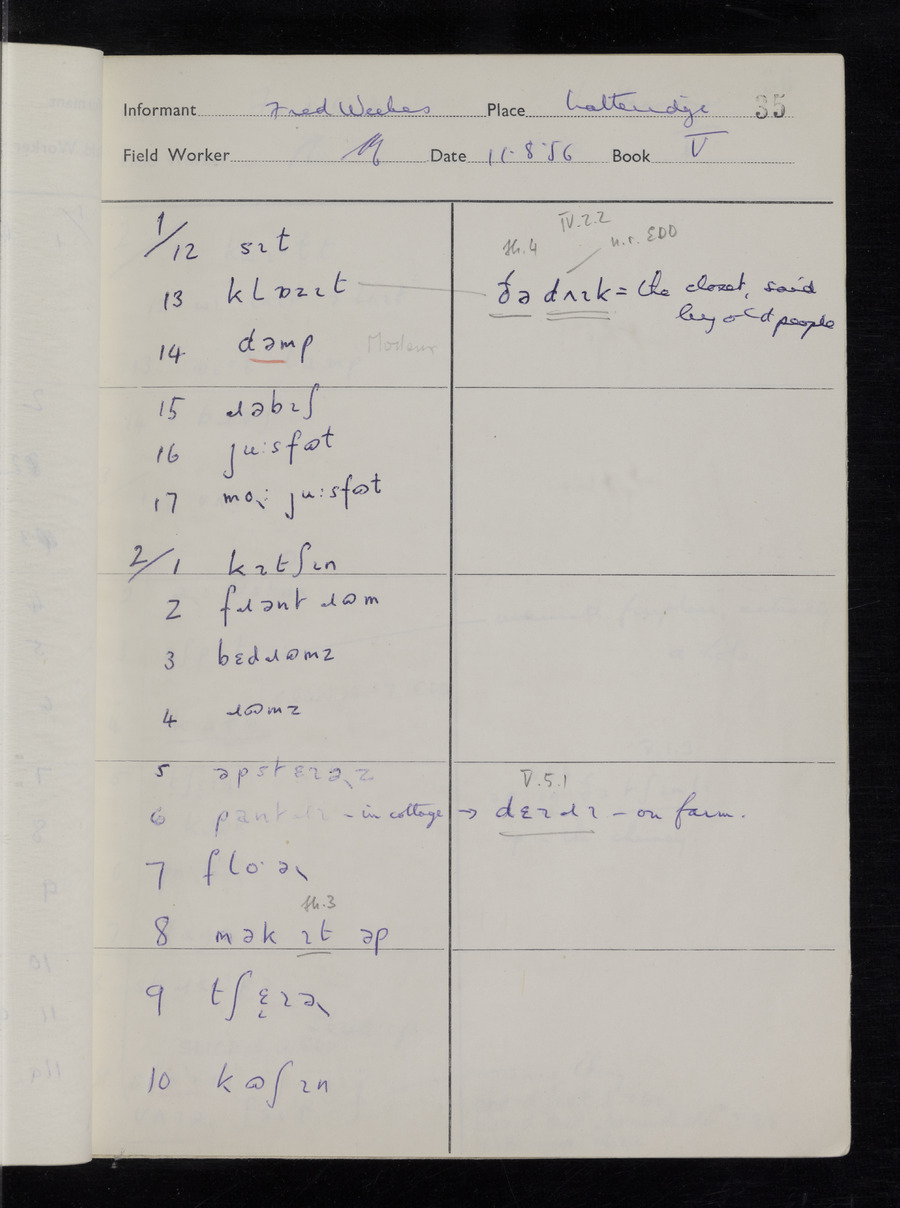 Informant Fred Weekes Place Latteridge 35
Field Worker Date 11.8.56 Book V
1/12 sɪt
IV.2.2
Sh.4 n.r. EDD
13 klɒzɪt ðə dʌɪk = the closet, said by old people
14 dəmp Modern
15 ɹəbɪʃ
16 juːsfʊt
17 juːsfʊt
2/1 kɪtʃɪn
2 fɹənt ɹʊm
3 bɛdɹʊmz
4 ɹʊmz
5 əpstɛɪəz
V.5.1
6 pantɹɪ – in cottage → dɛɪɹɪ – on farm.
7 floˑə
Sh.3
8 mək ɪt əp
9 tʃɛɪə
10 kʊʃɪn